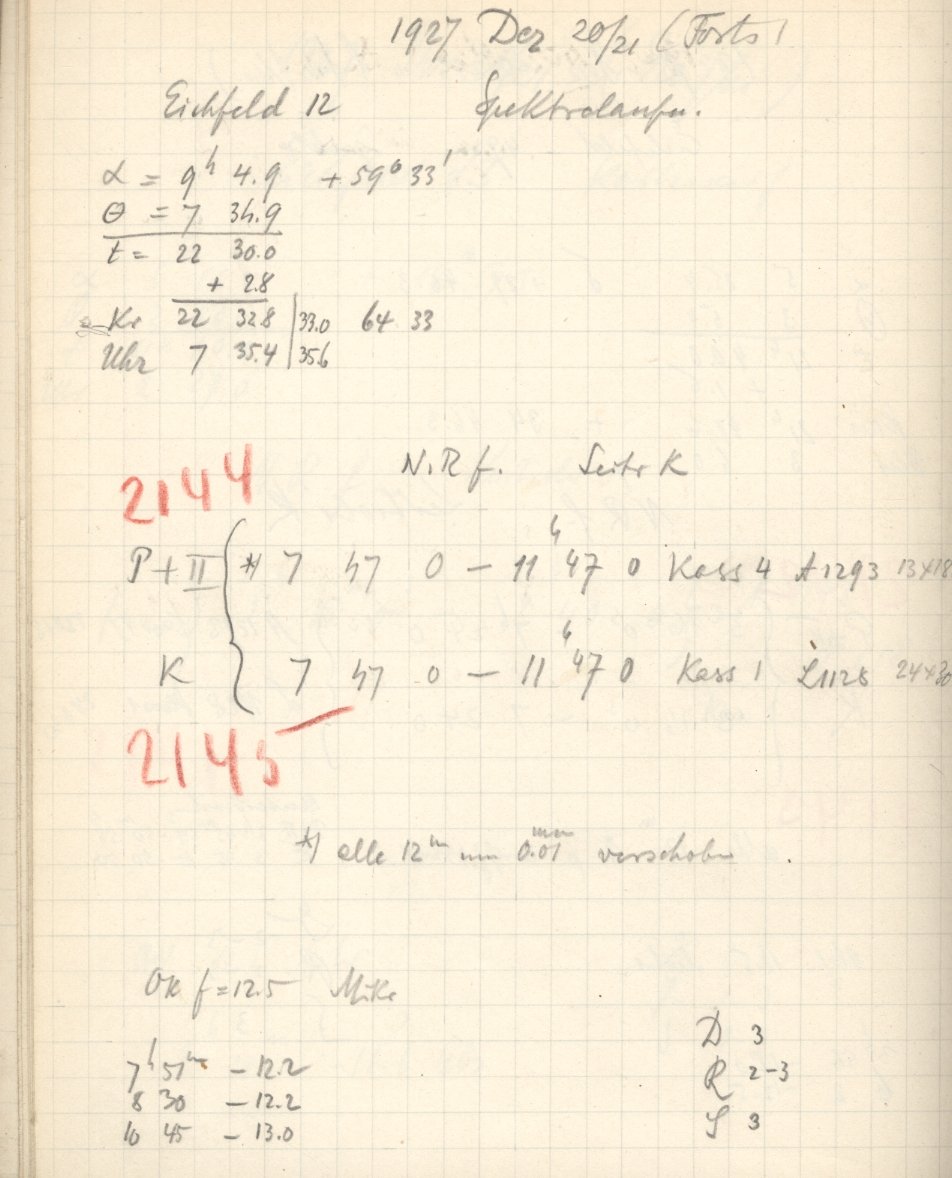 1927 Dez 20/21 (Forts)
Eichfeld 12 Spektralaufn.
α = 9h 4.9 + 59° 33'
θ = 7 34.9
t = 22 30.0
+ 2.8
Kr 22 32.8 | 33.0 64 33
Uhr 7 35.4 | 35.6
2144
N.R f. Seite K
P + II *) 7 47 0 – 11h 47 0 Kass 4 A1293 13×18
K 7 47 0 – 11h 47 0 Kass 1 L1125 24×30
2145
*) alle 12m um 0.01mm verschoben
OK f = 12.5 Mikr
7h 51m – 12.2
8 30 – 12.2
10 45 – 13.0
D 3
R 2–3
S 3